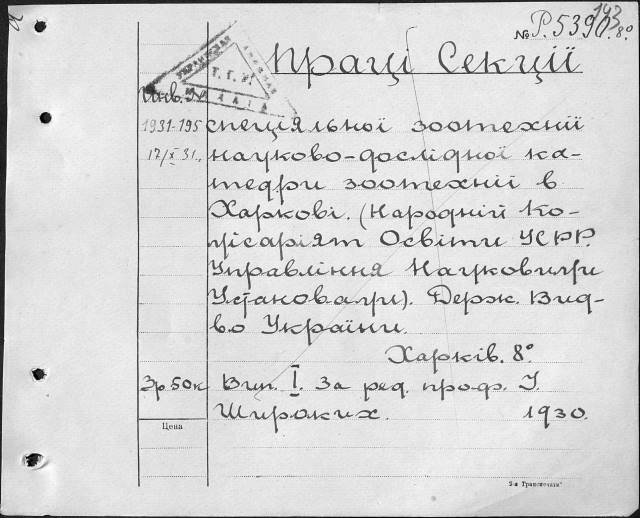 № Р.5390. 8°
Праці Секції
1931-195
17/X 31.
спеціяльної зоотехнії
науково-дослідної ка-
тедри зоотехнії в
Харкові. (Народній Ко-
місаріят Освіти УСРР.
Управління Науковими
Установами). Держ. Вид-
во України.
Харків. 8°
3р 50к Вип. I. За ред. проф. І.
Широких. 1930.
Цена